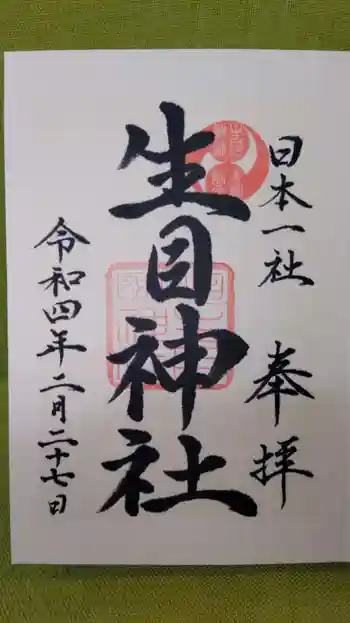 日本一社 奉拝
生目神社
令和四年二月二十七日